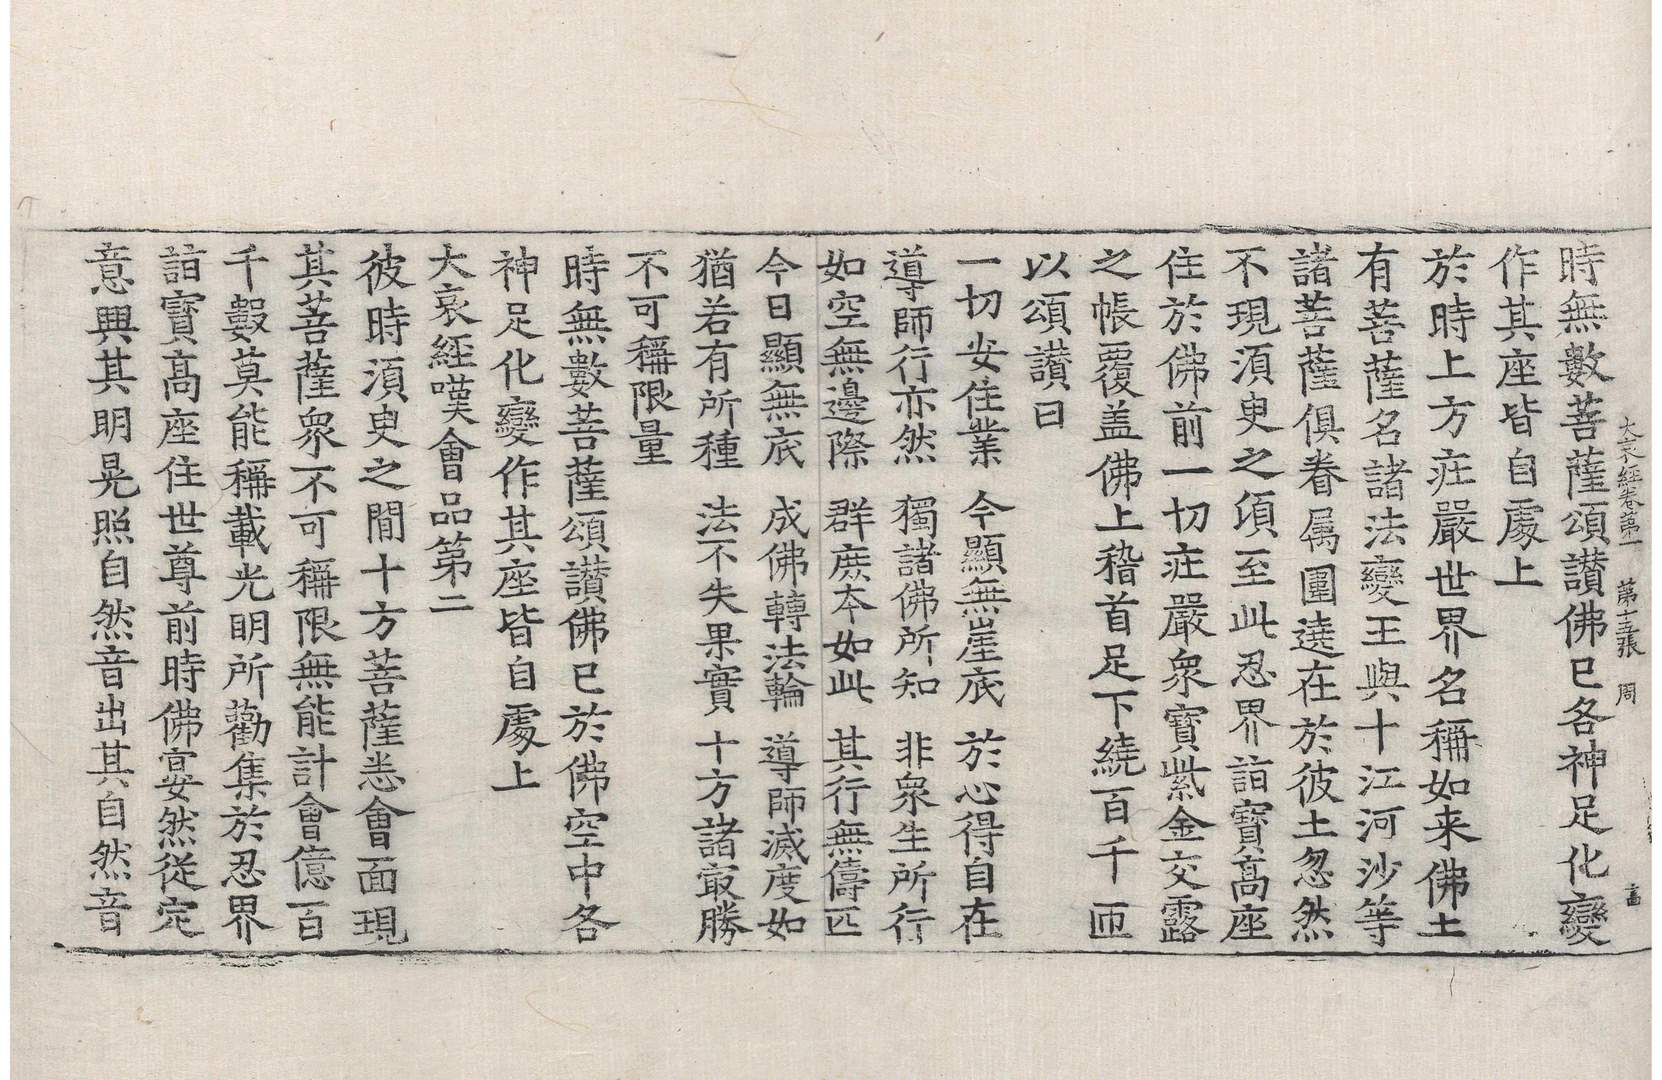 大哀經卷第一 第十三張 周
時無數菩薩頌讃佛已各神足化變
作其座皆自䖏上
於時上方㽵嚴世界名稱如来佛土
有菩薩名諸法變王與十江河沙等
諸菩薩俱眷属圍遶在於彼土忽然
不現須臾之須至此忍界詣寶髙座
住於佛前一切㽵嚴衆寶紫金交露
之帳覆盖佛上稽首足下繞百千匝
以頌讃曰
一切安住業 今顯無崖底 於心得自在
導師行亦然 獨諸佛所知 非衆生所行
如空無邊際 群庶本如此 其行無儔匹
今日顯無底 成佛轉法輪 導師滅度如
猶若有所種 法不失果實 十方諸㝡勝
不可稱限量
時無數菩薩頌讃佛已於佛空中各
神足化變作其座皆自䖏上
大哀經嘆會品第二
彼時須臾之間十方菩薩悉會面現
其菩薩衆不可稱限無能計會億百
千數莫能稱載光明所勸集於忍界
詣寶髙座住世尊前時佛宴然從定
意興其明晃照自然音出其自然音